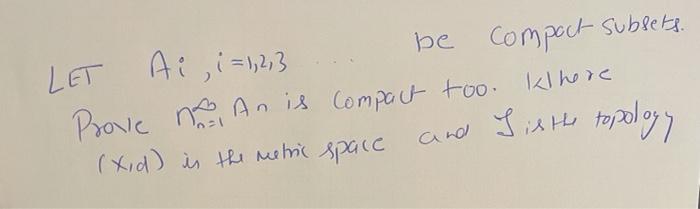 LET Ai, i=1,2,3 ... be compact subsets.
Prove ∩_{n=1}^∞ An is compact too. Where
(X,d) is the metric space and J is the topology